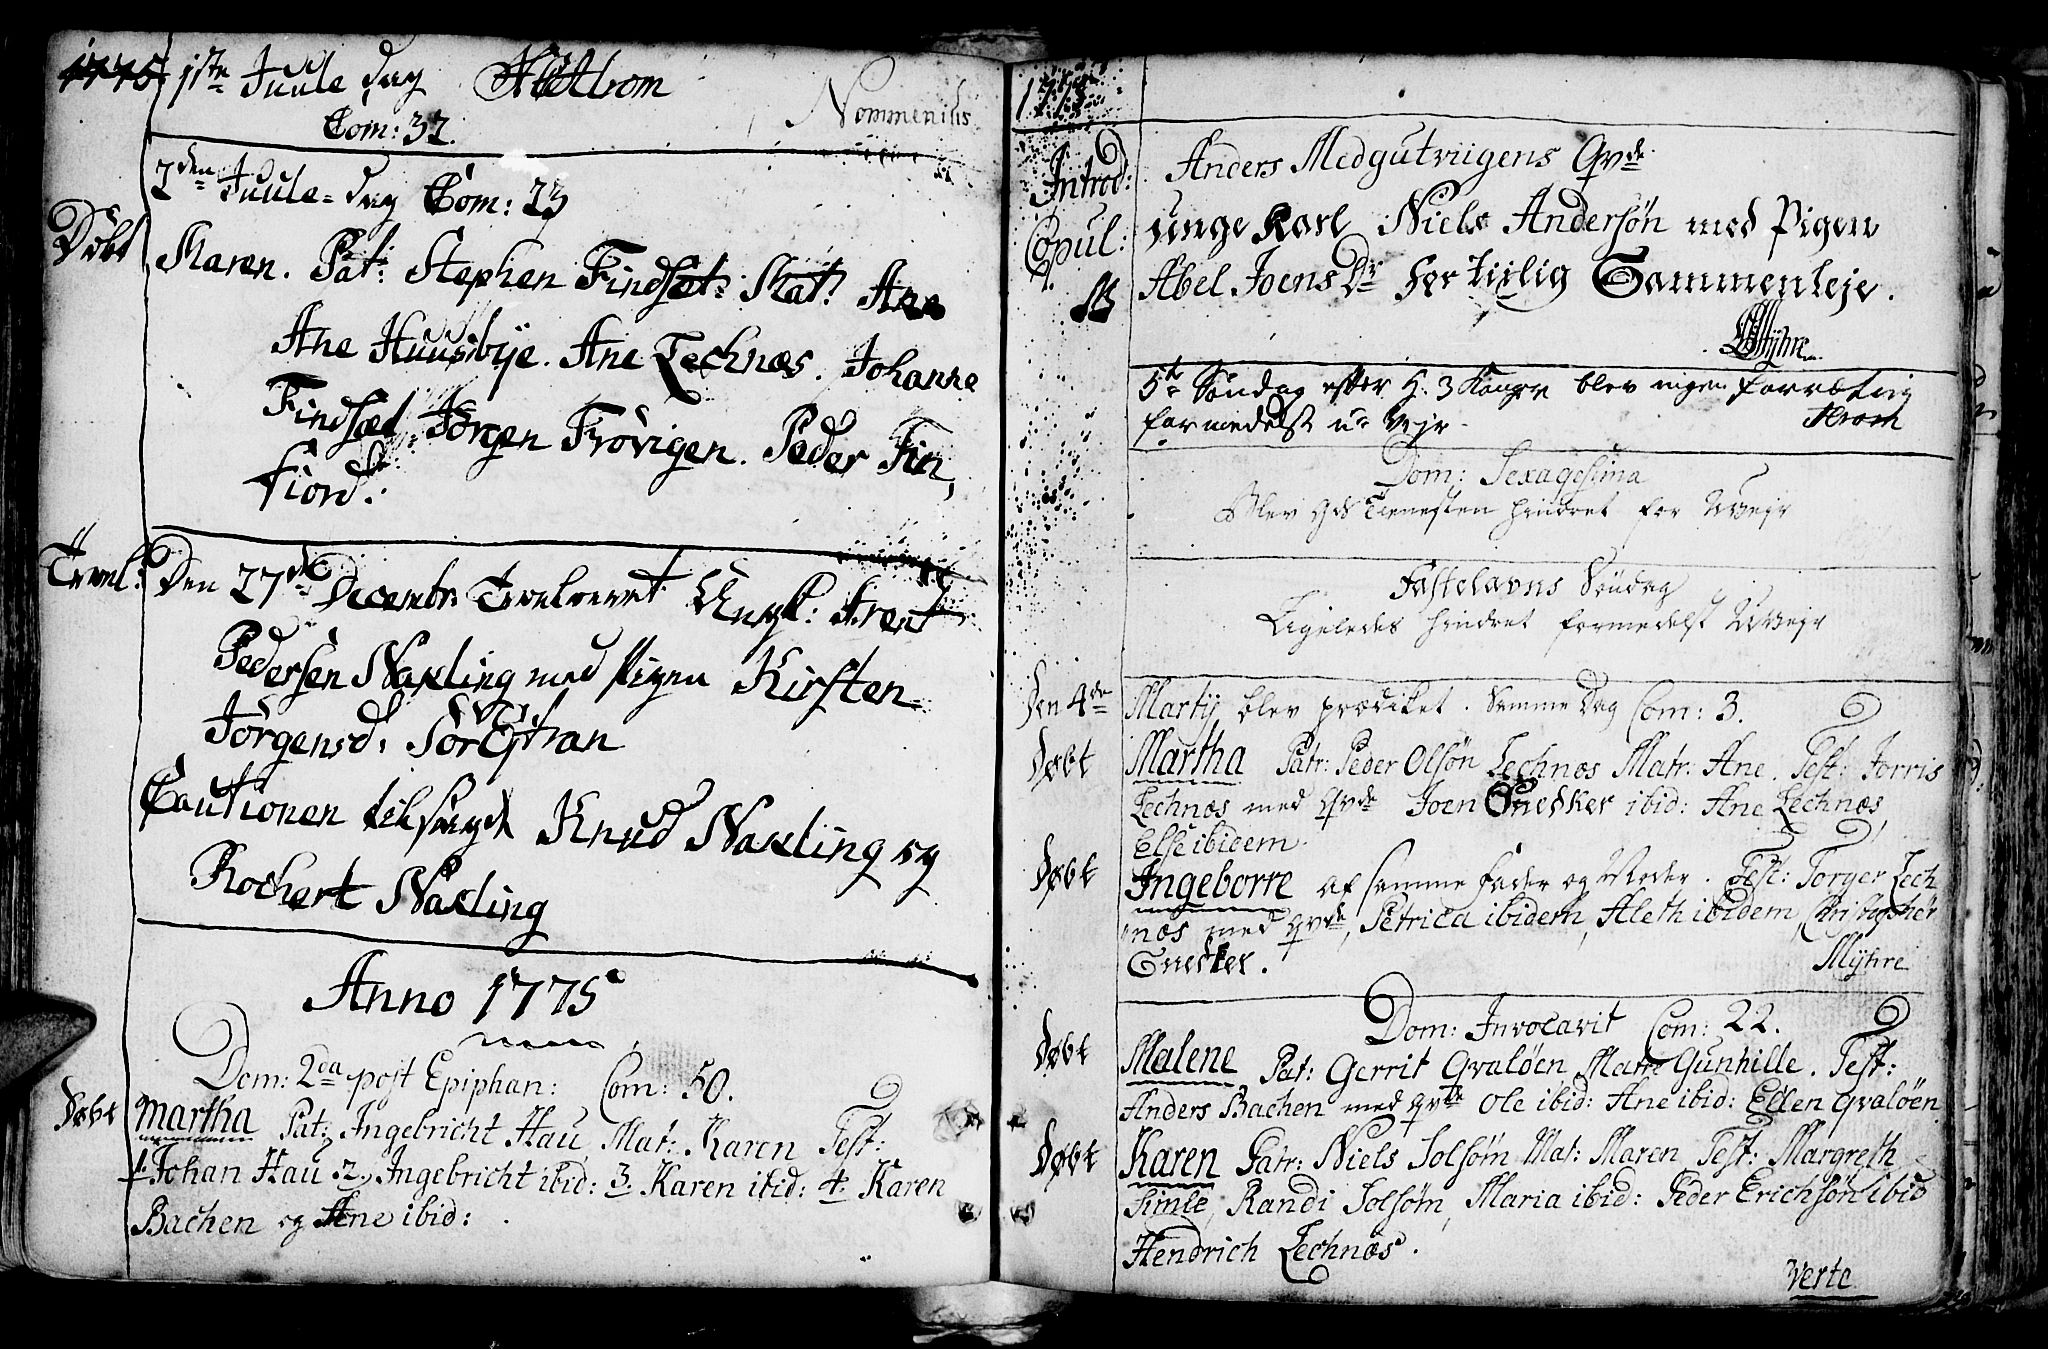 1775. 1ste Juule dag
Com: 32.
Nommenitis
2den Juule-dag Com: 23
Døbt Maren. Pat: Stephen Findset. Mat: Ane
Ane Huusbye. Ane Lechnæs. Johanne
Findset Jørgen Frøvigen. Peder Fin,
fiord:
Trvel: Den 27de Decembr Trvelovet Ungk: Arent
Pedersen Næsling med Pigen Kirsten
Jørgensd:
Cautionen tilsagde Knud Næsling og
Rochert Næsling
Anno 1775
Dom: 2da post Epiphan: Com: 50.
Døbt Martha Pat: Ingebricht Hau, Mat: Karen Test:
1. Johan Hau 2. Ingebricht ibid: 3. Karen ibid: 4. Karen
Bachen og Ane ibid:
1775
Introd: Anders Medgutviigens Qvde
Copul: unge Karl Niels Andersøn med Pigen
NB Abel Joens Dr for tiilig Sammenleje.
Myhre
5te Søndag efter H. 3 Konger blev ingen forretning
formedelst u-Vejr
Dom: Sexagesima
Blev Gds Tienesten hindret for UVejr
Fastelavns Søndag
Ligeledes hindret formedelst UVejr
Den 4de Martij blev prædiket. Samme Dag Com: 3.
Døbt Martha Patr: Peder Olsøn Lechnæs Matr: Ane. Test: Jorris
Lechnæs med Qvde Joen Snedker ibid: Ane Lechnæs,
Else ibidem.
Døbt Ingeborre af samme Fader og Moder. Test: Torger Lech
næs med qvde, Petrica ibidem, Aleth ibidem, Christopher
Snedker. Myhre
Dom: Invocavit Com: 22.
Døbt Malene Pat: Gerrit Qvaløen Matr Gunhille. Test:
Anders Bachen med qvde Ole ibid: Ane ibid: Ellen Qvaløen
Døbt Karen Patr: Niels Solsøm Mat: Maren Test: Margreth
Simle, Randi Solsøm, Maria ibid: Peder Erichsøn ibid
Hendrich Lechnæs.
Verte